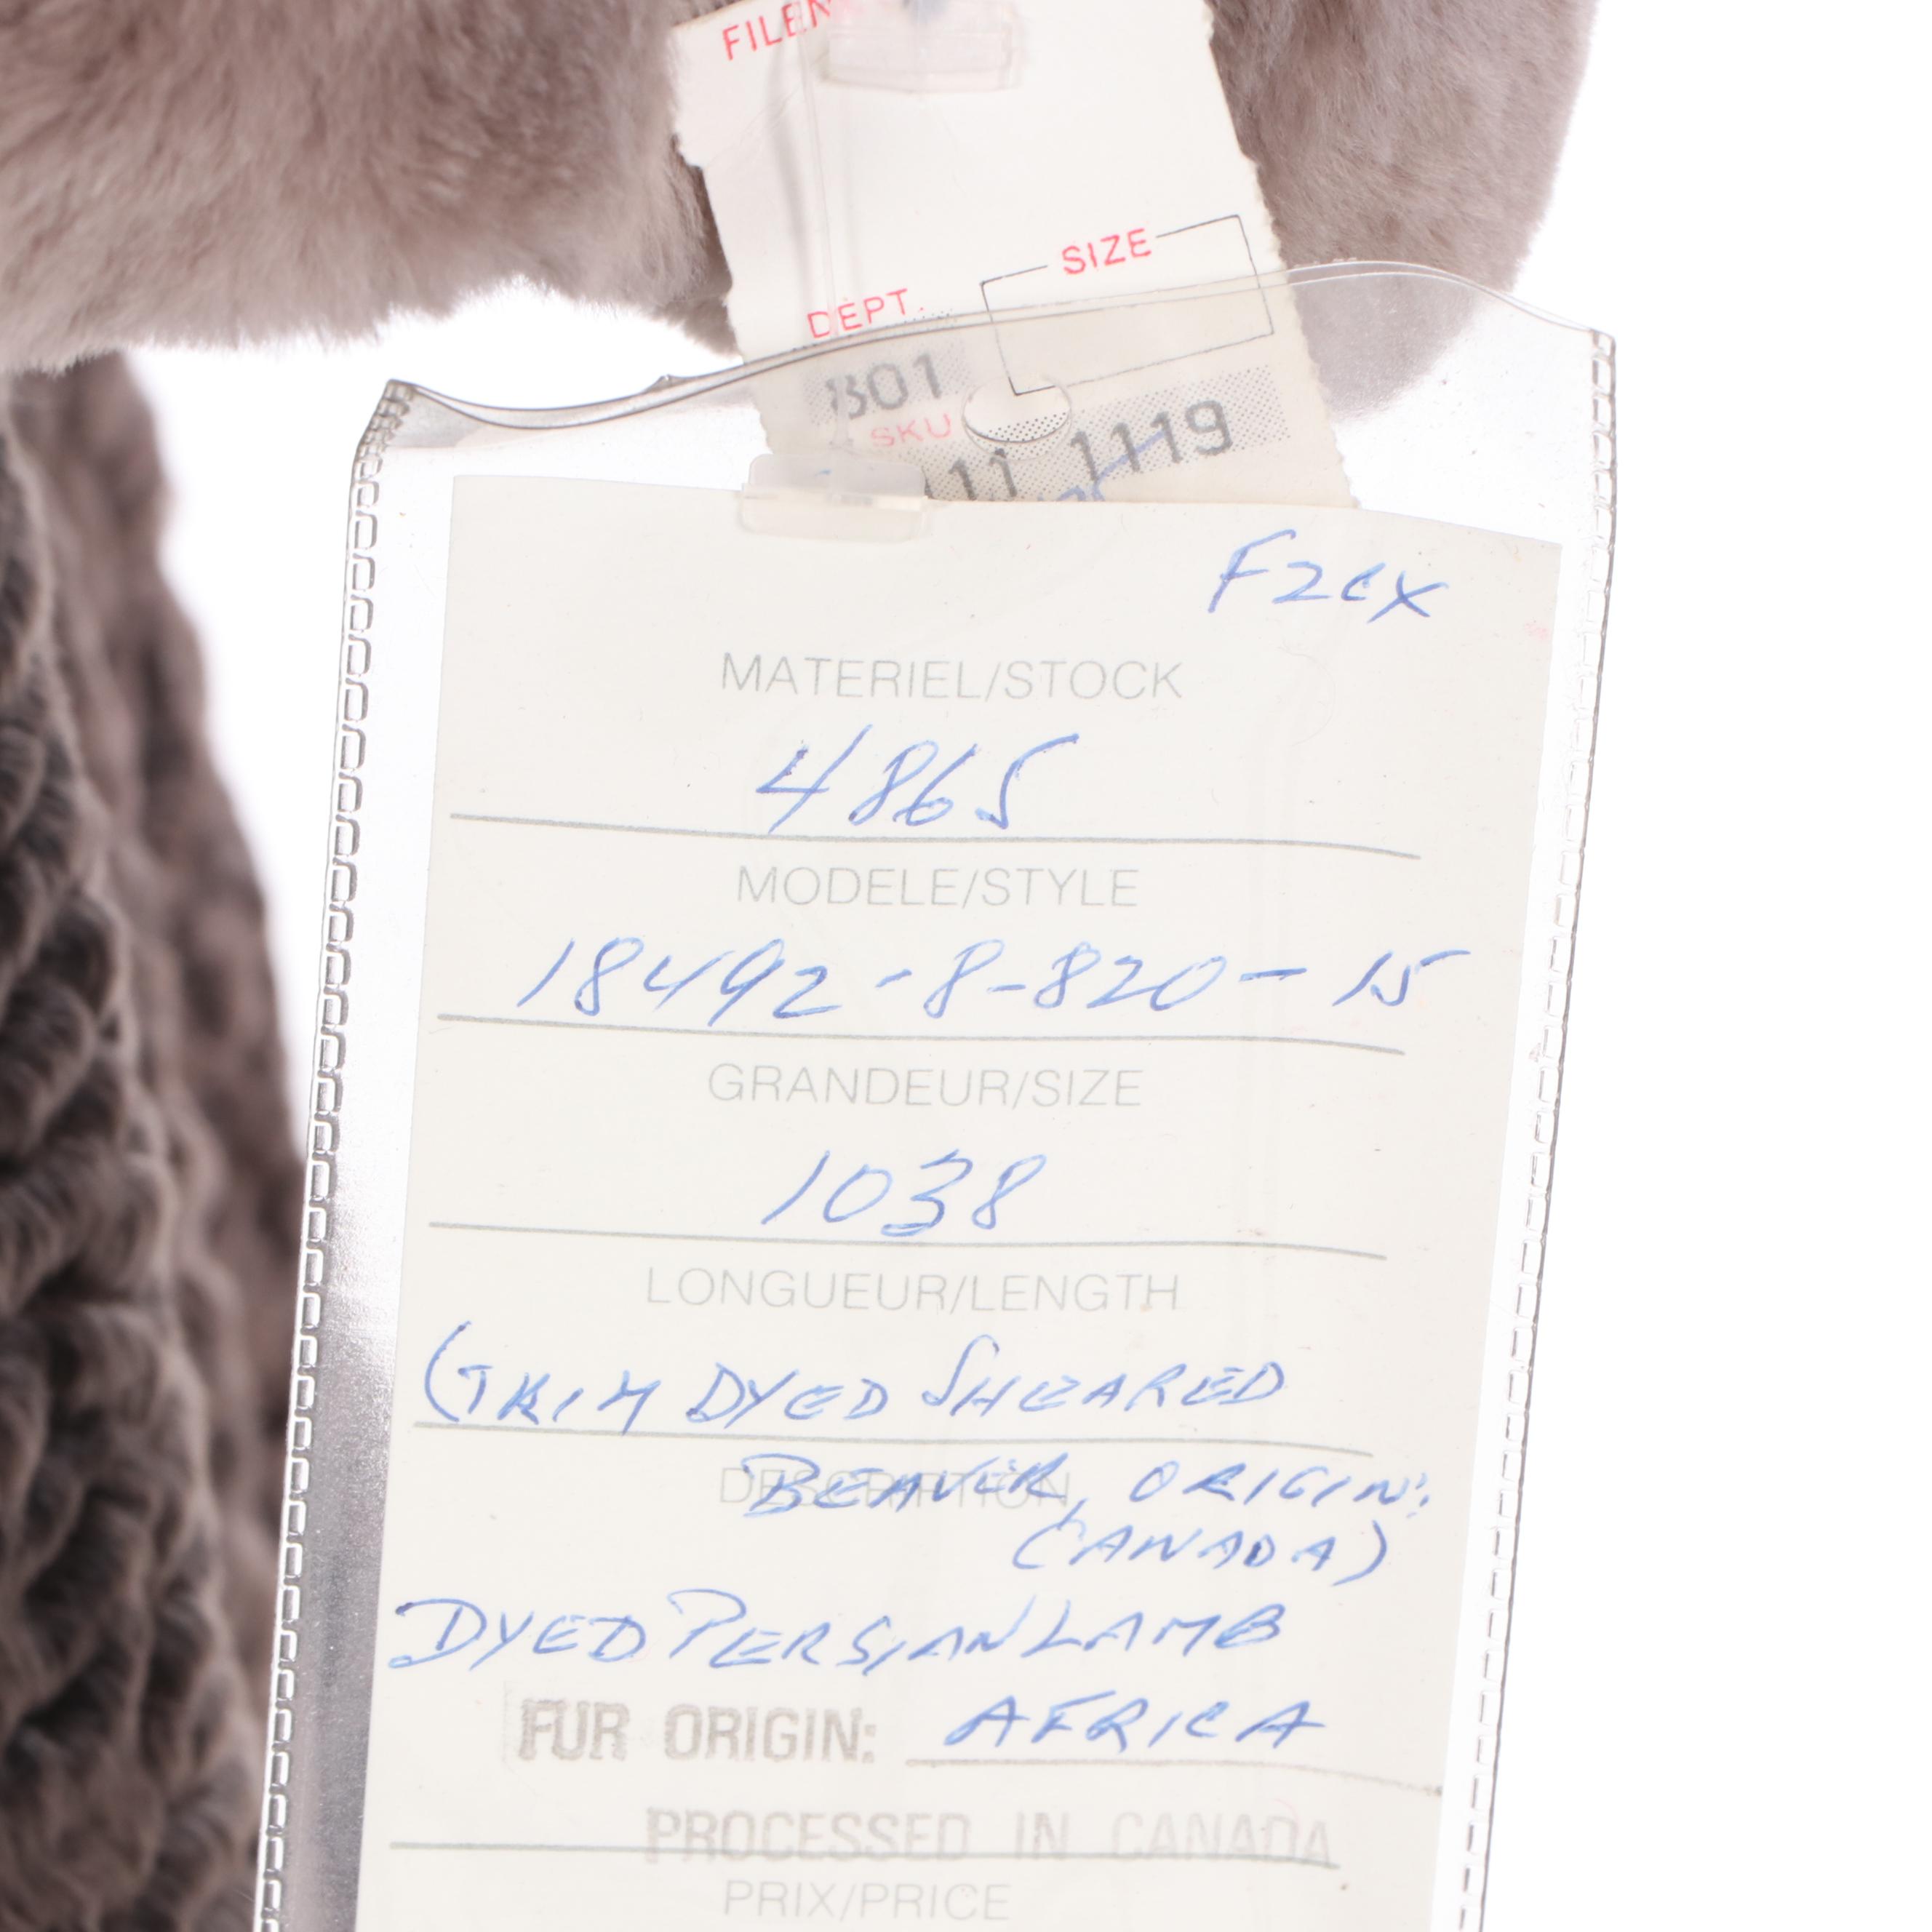 SIZE
DEPT.
SKU
11 1119
MATERIEL/STOCK
4865
MODELE/STYLE
18492-8-820-15
GRANDEUR/SIZE
1038
LONGUEUR/LENGTH
(TRIM DYED SHEARED
DESCRIPTION
BEAVER, ORIGIN:
CANADA)
DYED PERSIAN LAMB
FUR ORIGIN: AFRICA
PROCESSED IN CANADA
PRIX/PRICE